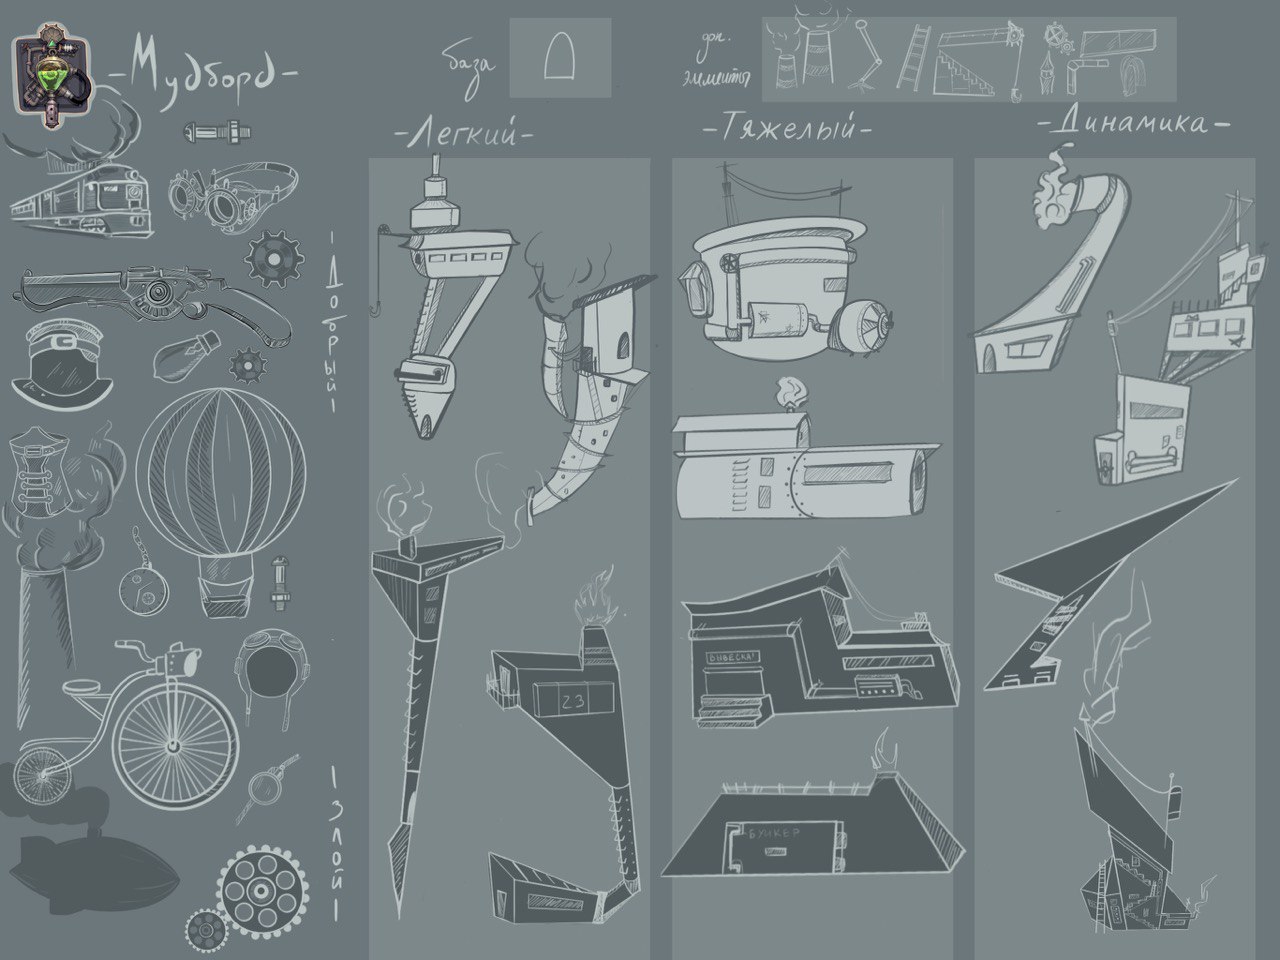 -Мудборд-
база
доп.
элементы
-Легкий-
-Тяжелый-
-Динамика-
-Добрый-
-Злой-
23
ВЫВЕСКА!
БУНКЕР